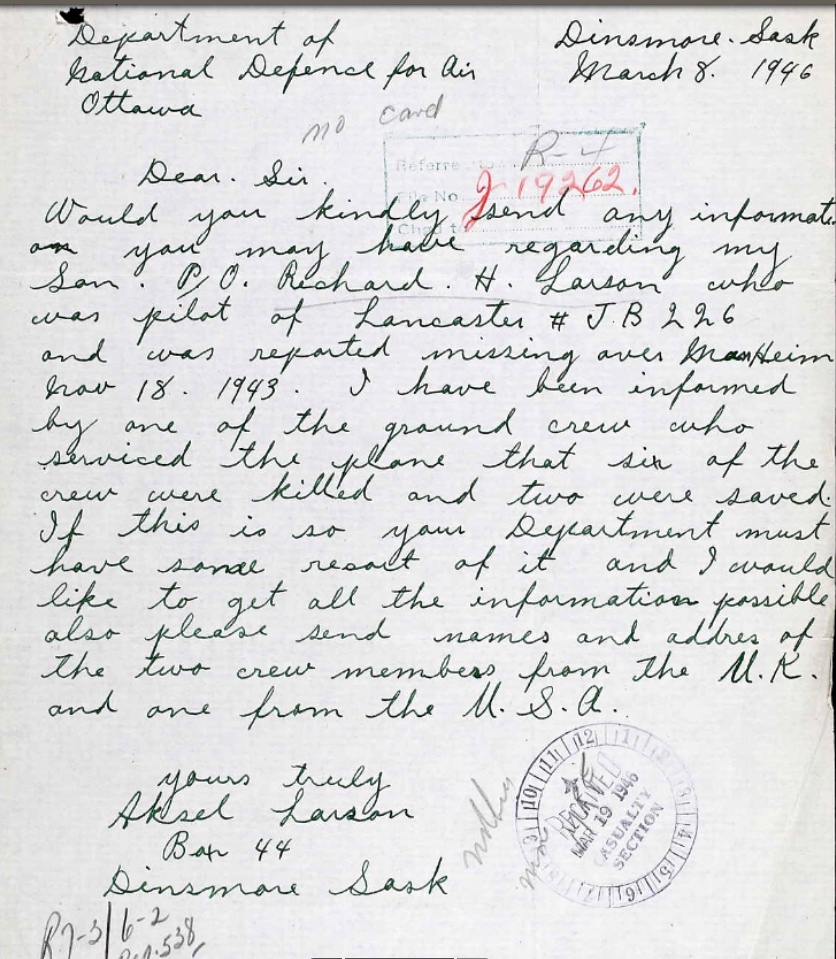 Department of
National Defence for Air
Ottawa
Dinsmore. Sask
March 8. 1946
no card
Referre
R-4
File No. J 19262.
Chgd to
Dear. Sir.
Would you kindly send any informati
on you may have regarding my
Son. P/O. Richard. H. Larson who
was pilot of Lancaster # J.B 226
and was reported missing over ManHeim
Nov 18. 1943. I have been informed
by one of the ground crew who
serviced the plane that six of the
crew were killed and two were saved.
If this is so your Department must
have some resort of it and I would
like to get all the information possible
also please send names and addres of
the two crew members from the U.K.
and one from the U. S. A.
yours truly
Aksel Larson
Box 44
Dinsmore Sask
RECEIVED
MAR 19 1946
CASUALTY
SECTION
12 1 2 3 4 5 6 7 8 9 10 11
R7-3/6-2
538,